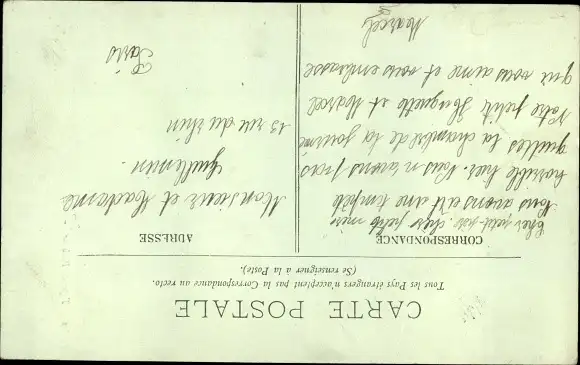 CARTE POSTALE
Tous les Pays étrangers n'acceptent pas la Correspondance au recto.
(Se renseigner à la Poste).
CORRESPONDANCE
Cher petit-père, chère petite mère
Nous avons eût une tempête
horrible hier. Nous n'avons pas
quittes la chambre de la journé
Votre petite Huguette et Marcel
qui vous aime et vous embrasse
Marcel
ADRESSE
Monsieur et Madame
Guilleman
13 rue du Rhin
Paris